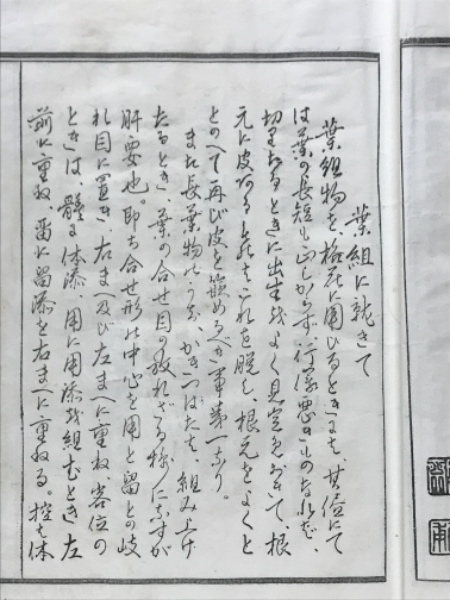 葉組に就きて
葉組物を、格花に用ひるときは、其儘にて
は葉の長短も正しからず、行儀悪きものなれば、
切りたるときに出生をよく見定め於いて、根
元に皮あるものはこれを脱し、根元をよくと
とのへて再び皮を嵌めるべき事第一なり。
また長葉物のうち、かきつはたを、組み上げ
たるとき、葉の合せ目の放れざる様になすが
肝要也。即ち合せ形は中心を用と留との岐
れ目に置き、右まへ及び左まへに重ね、客位の
ときは、體に体添、用に用添を組むとき左
前に重ね、留に留添を右まへに重ねる。控も体